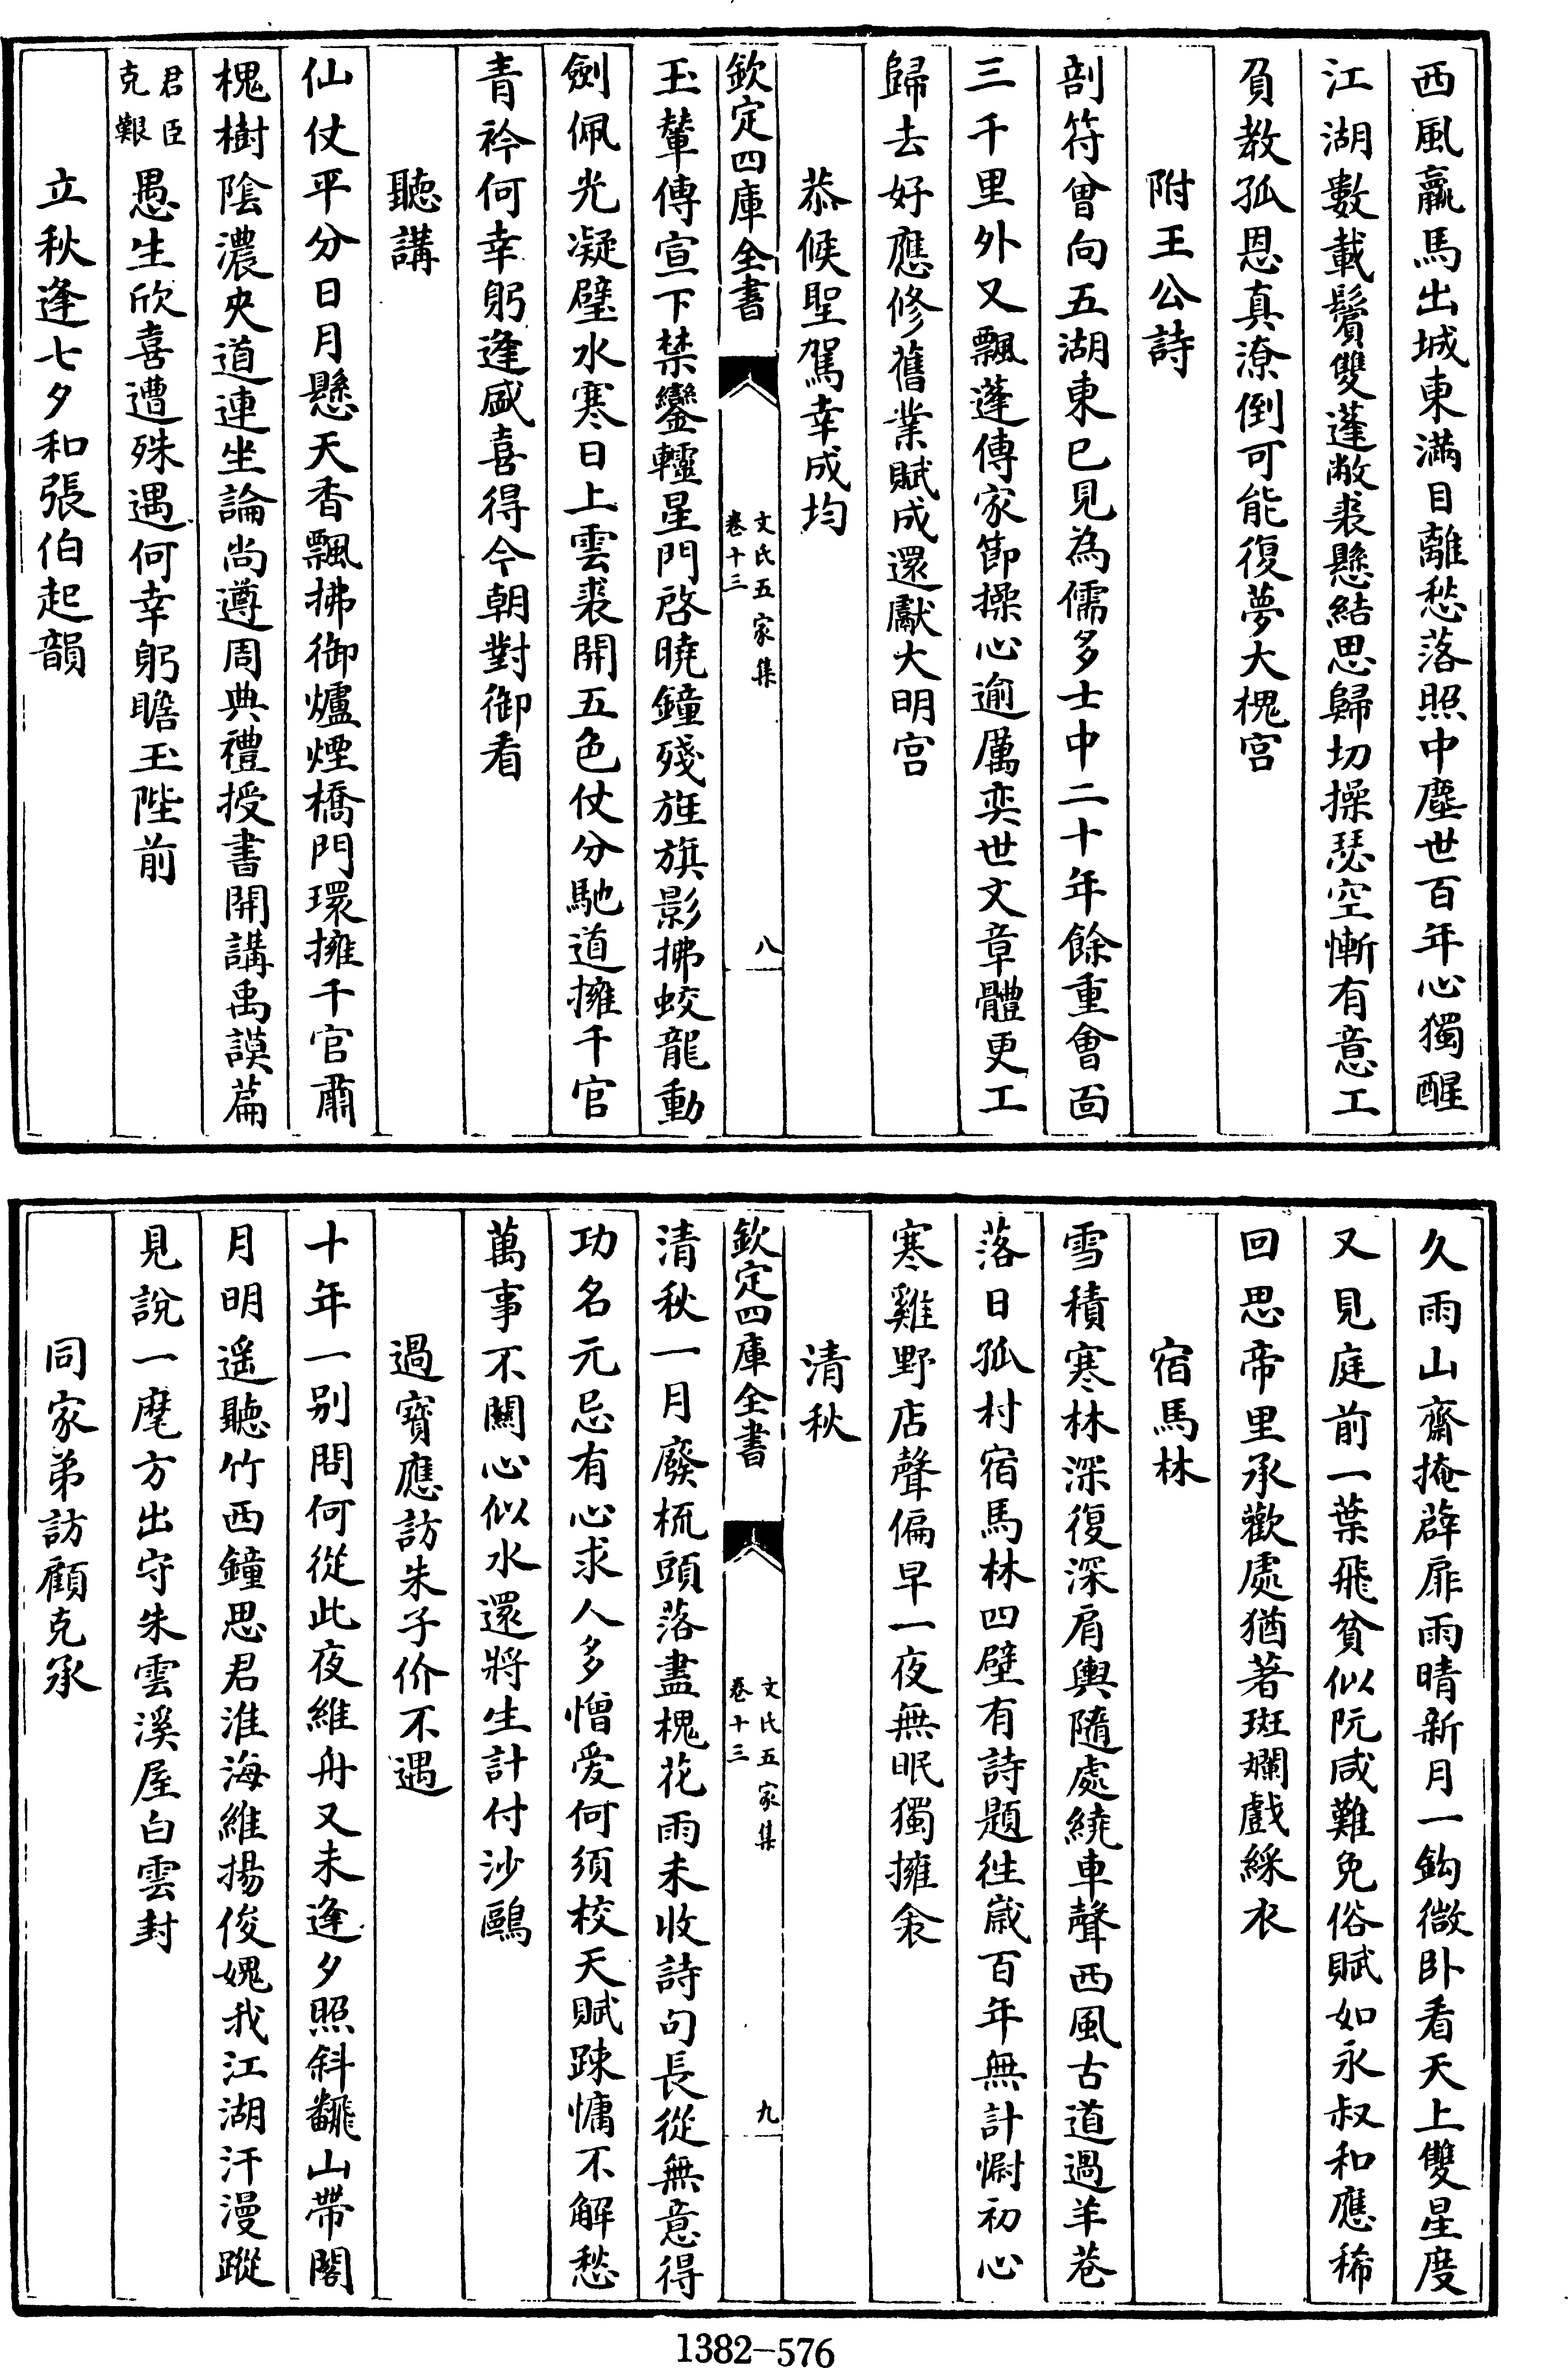 西風羸馬出城東滿目離愁落照中塵世百年心獨醒
江湖數載鬢雙蓬敝裘懸結思歸切操瑟空慚有意工
負教孤恩真潦倒可能復夢大槐宮
附王公詩
剖符曾向五湖東已見為儒多士中二十年餘重會面
三千里外又飄蓬傳家節操心逾厲奕世文章體更工
歸去好應修舊業賦成還獻大明宮
恭候聖駕幸成均
欽定四庫全書
文氏五家集
卷十三
八
玉輦傳宣下禁鑾轜星門啓曉鐘殘旌旗影拂蛟龍動
劍佩光凝璧水寒日上雲裘開五色仗分馳道擁千官
青衿何幸躬逢盛喜得今朝對御看
聽講
仙仗平分日月懸天香飄拂御爐煙橋門環擁千官肅
槐樹陰濃夾道連坐論尚遵周典禮授書開講禹謨篇
君臣
克艱
愚生欣喜遭殊遇何幸躬瞻玉陛前
立秋逢七夕和張伯起韻
久雨山齋掩薜扉雨晴新月一鈎微卧看天上雙星度
又見庭前一葉飛貧似阮咸難免俗賦如永叔和應稀
回思帝里承歡處猶著斑斕戲綵衣
宿馬林
雪積寒林深復深肩輿隨處繞車聲西風古道過羊巷
落日孤村宿馬林四壁有詩題往歲百年無計慰初心
寒雞野店聲偏早一夜無眠獨擁衾
清秋
欽定四庫全書
文氏五家集
卷十三
九
清秋一月廢梳頭落盡槐花雨未收詩句長從無意得
功名元忌有心求人多憎愛何須校天賦踈慵不解愁
萬事不關心似水還將生計付沙鷗
過寶應訪朱子价不遇
十年一別問何從此夜維舟又未逢夕照斜飜山帶閣
月明遥聽竹西鐘思君淮海維揚俊媿我江湖汗漫蹤
見說一麾方出守朱雲溪屋白雲封
同家弟訪顧克承
1382-576